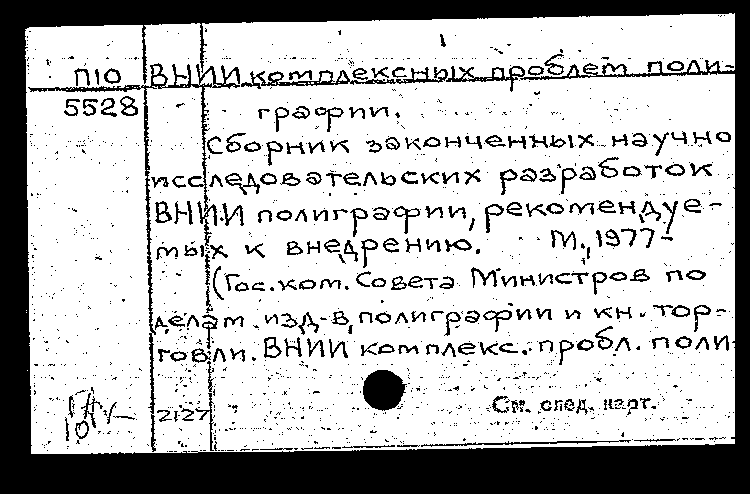 П10 ВНИИ комплексных проблем поли-
5528 графии.
Сборник законченных научно
исследовательских разработок
ВНИИ полиграфии, рекомендуе-
мых к внедрению. М., 1977-
(Гос. ком. Совета Министров по
делам изд-в, полиграфии и кн. тор-
говли. ВНИИ комплекс. пробл. поли
2127 См. след. карт.